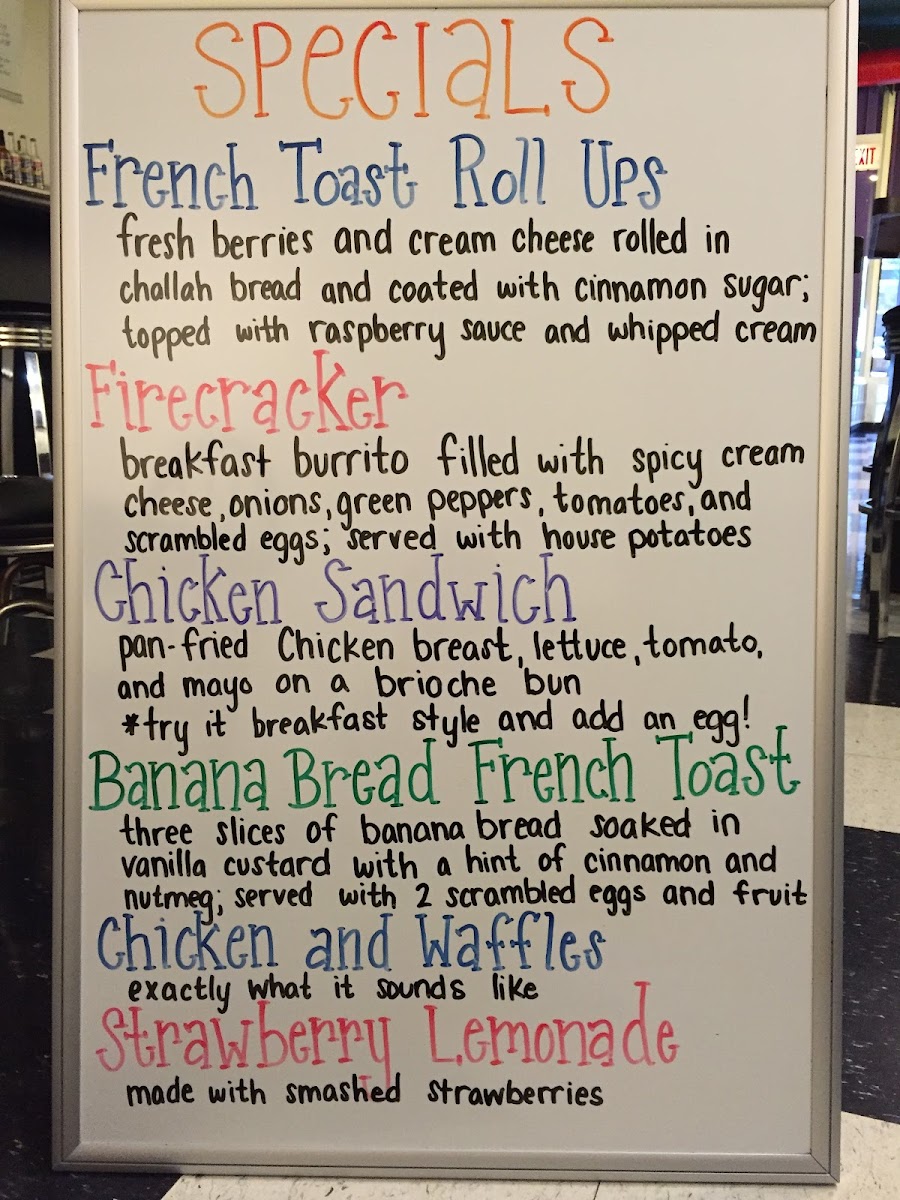 SPECIALS
French Toast Roll Ups
fresh berries and cream cheese rolled in
challah bread and coated with cinnamon sugar;
topped with raspberry sauce and whipped cream
Firecracker
breakfast burrito filled with spicy cream
cheese, onions, green peppers, tomatoes, and
scrambled eggs; served with house potatoes
Chicken Sandwich
pan-fried Chicken breast, lettuce, tomato,
and mayo on a brioche bun
*try it breakfast style and add an egg!
Banana Bread French Toast
three slices of banana bread soaked in
vanilla custard with a hint of cinnamon and
nutmeg; served with 2 scrambled eggs and fruit
Chicken and Waffles
exactly what it sounds like
Strawberry Lemonade
made with smashed strawberries
EXIT